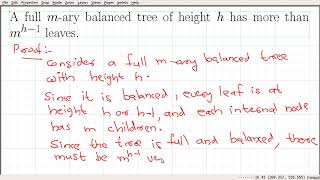 A full m-ary balanced tree of height h has more than
m^{h-1} leaves.
Proof:-
Consider a full m-ary balanced tree
with height h.
Since it is balanced, every leaf is at
height h or h-1, and each internal node
has m children.
Since the tree is full and balanced, there
must be m^{h-1} ver